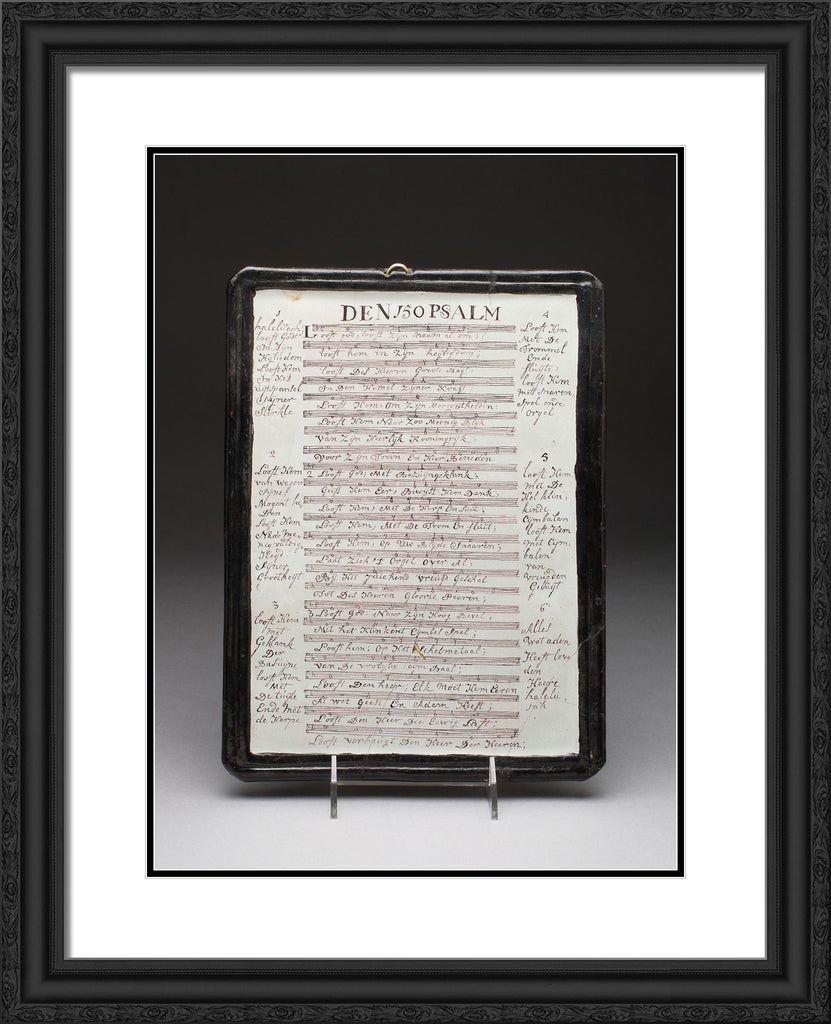 DEN 150 PSALM
1
haleluiach
looft Godt
In Zyn
Hyligdom
Looft Hem
In Het
uytspantsel
Synner
Sterkte
2
Looft Hem
van wegen
Synes
Mogent he
Den
looft Hem
Nade me
nigvuldig
Heyd
Syner
Grootheyt
3
looft Hem
met
Geklank
Der
Basuyne
looft Hem
Met
De luijte
Ende Met
de Harpe
Looft god, looft Zyn naam al om;
looft hem in Zyn heyligdom;
looft Des Heeren Groote Magt
In Den Hemel Zyner Kragt:
Looft Hem, Om Zyn Mogentheeden:
Looft Hem Naar Zoo Meenig Blyk
Van Zyn Heerlyk Kooningryk,
Voor Zyn Troon En Hier Beneden
2 Looft God, Met Bazuyngeklank;
Geeft Hem Eer, Bewyst Hem Dank;
Looft Hem, Met De Harp En Luit;
Looft Hem, Met De Trom En fluit;
Looft Hem, Op Uw Blyde Snaaren;
Laat Zich 't Orgel Over Al;
By Het Juichend vreugd Geschal
Tot Des Heeren Gloorie Paaren;
3 Looft god Naar Zyn Hoog Bevel,
Met het Klinkent Cymbel Spel;
Looft hem; Op Het Schelmetaal;
van De vrolyke Cym Baal;
Looft Den heer; Elk Moet Hem Eeren
Al wat Geest En Adem Heeft;
Looft Den Heer Die Eewig Left;
Looft verheugt Den Heer Der Heeren;
4
Looft Hem
Met De
Trommel
Ende
fluyte:
looft Hem
met Snaren
Spel ende
Orgel
5
looft Hem
met De
Hel klin,
kinde
Cymbalen
looft Hem
met Cym,
balen
van
vreugden
Geluyt
6
Alles
Wat aden
Heeft love
den
Heere
halelu
jah